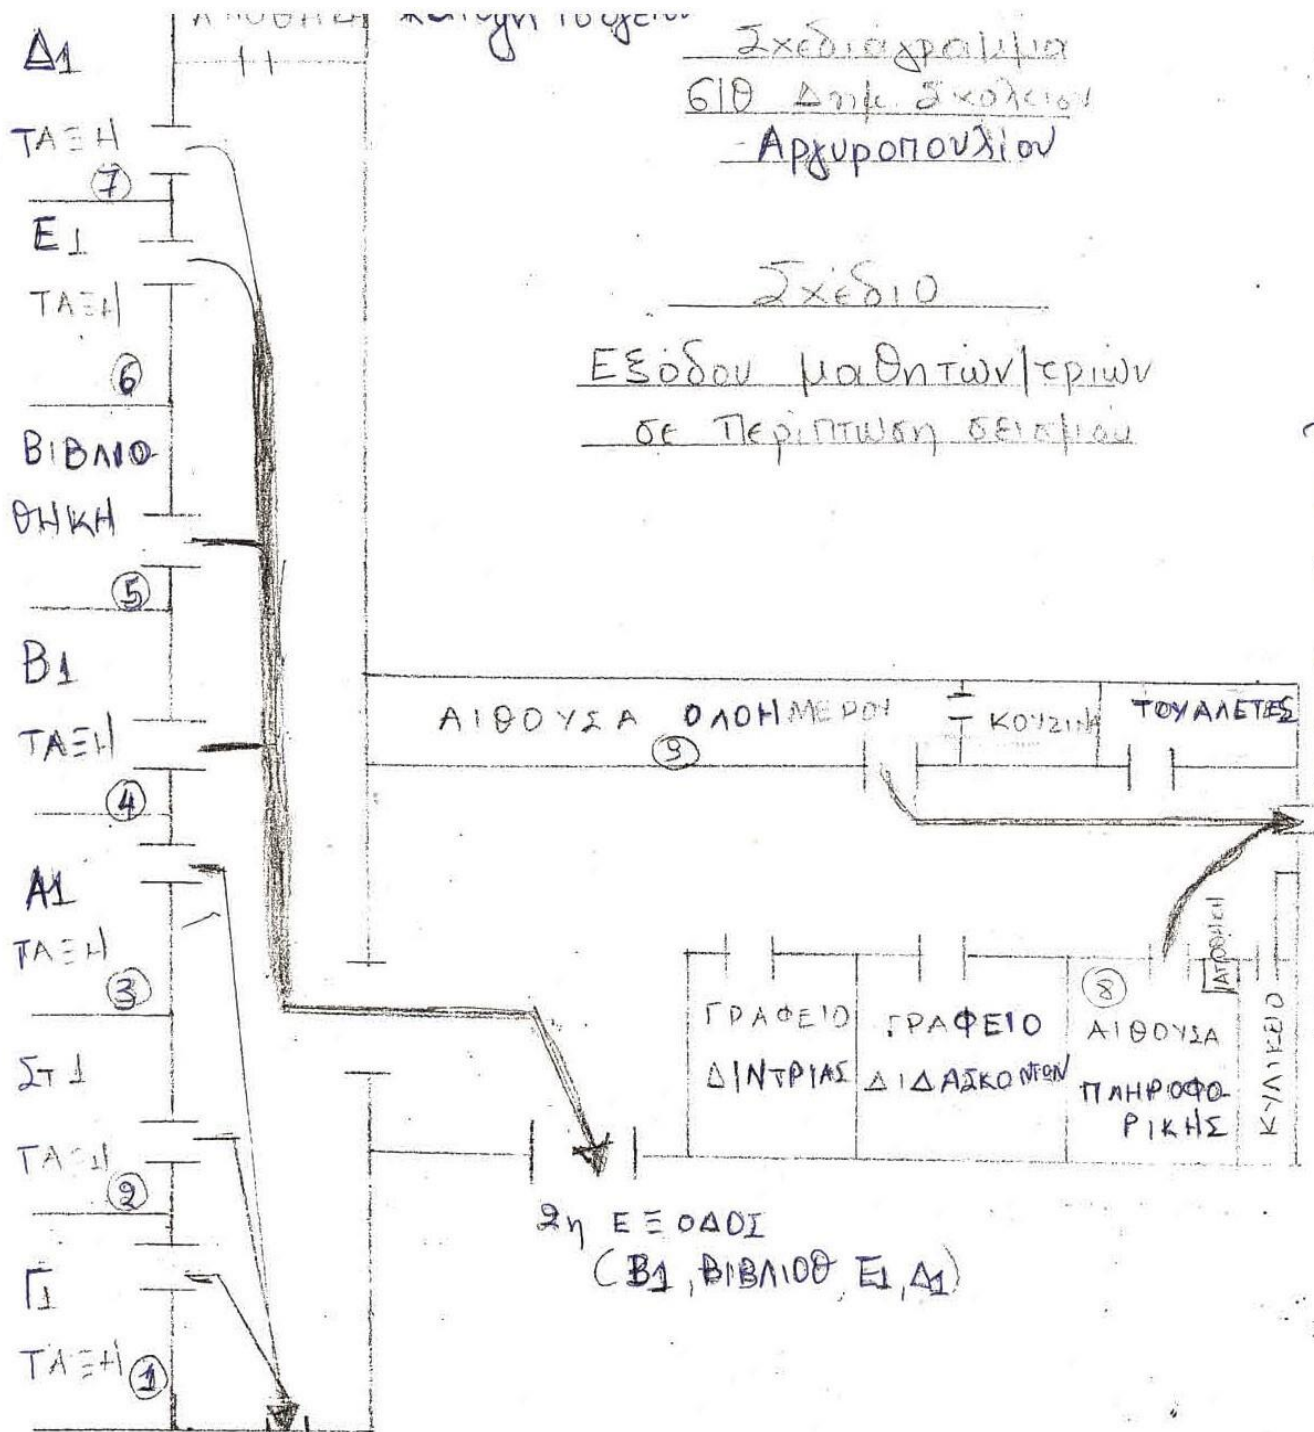 Σχεδιάγραμμα
6/Θ Δημ. Σχολείου
Αργυροπουλίου
Σχέδιο
Εξόδου μαθητών/τριών
σε περίπτωση σεισμού
Δ1
ΤΑΞΗ
7
Ε1
ΤΑΞΗ
6
ΒΙΒΛΙΟ-
ΘΗΚΗ
5
Β1
ΤΑΞΗ
4
Α1
ΤΑΞΗ
3
ΣΤ1
ΤΑΞΗ
2
Γ1
ΤΑΞΗ 1
ΑΙΘΟΥΣΑ ΟΛΟΗΜΕΡΟΥ
9
ΚΟΥΖΙΝΑ
ΤΟΥΑΛΕΤΕΣ
ΓΡΑΦΕΙΟ
Δ/ΝΤΡΙΑΣ
ΓΡΑΦΕΙΟ
ΔΙΔΑΣΚΟΝΤΩΝ
8
ΑΙΘΟΥΣΑ
ΠΛΗΡΟΦΟ-
ΡΙΚΗΣ
ΑΠΟΘΗΚΗ
ΚΥΛΙΚΕΙΟ
2η ΕΞΟΔΟΣ
(Β1, ΒΙΒΛΙΟΘ, Ε1, Δ1)